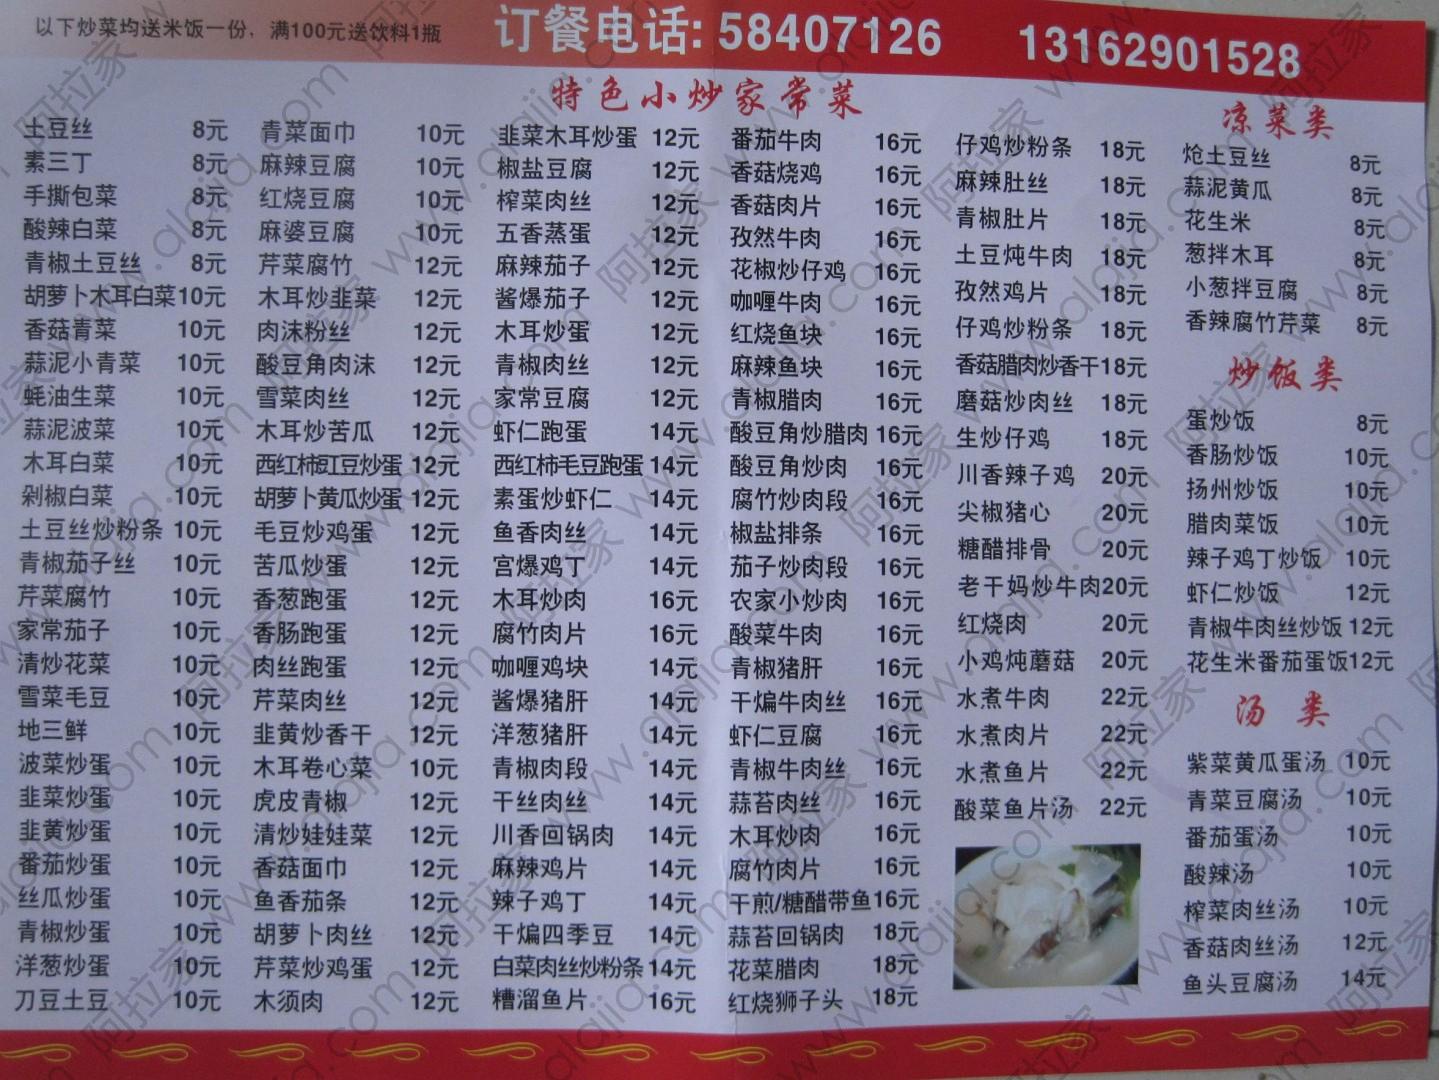 以下炒菜均送米饭一份,满100元送饮料1瓶
订餐电话:58407126 13162901528
特色小炒家常菜
土豆丝 8元
素三丁 8元
手撕包菜 8元
酸辣白菜 8元
青椒土豆丝 8元
胡萝卜木耳白菜10元
香菇青菜 10元
蒜泥小青菜 10元
蚝油生菜 10元
蒜泥波菜 10元
木耳白菜 10元
剁椒白菜 10元
土豆丝炒粉条 10元
青椒茄子丝 10元
芹菜腐竹 10元
家常茄子 10元
清炒花菜 10元
雪菜毛豆 10元
地三鲜 10元
波菜炒蛋 10元
韭菜炒蛋 10元
韭黄炒蛋 10元
番茄炒蛋 10元
丝瓜炒蛋 10元
青椒炒蛋 10元
洋葱炒蛋 10元
刀豆土豆 10元
青菜面巾 10元
麻辣豆腐 10元
红烧豆腐 10元
麻婆豆腐 10元
芹菜腐竹 12元
木耳炒韭菜 12元
肉沫粉丝 12元
酸豆角肉沫 12元
雪菜肉丝 12元
木耳炒苦瓜 12元
西红柿豇豆炒蛋 12元
胡萝卜黄瓜炒蛋 12元
毛豆炒鸡蛋 12元
苦瓜炒蛋 12元
香葱跑蛋 12元
香肠跑蛋 12元
肉丝跑蛋 12元
芹菜肉丝 12元
韭黄炒香干 12元
木耳卷心菜 10元
虎皮青椒 12元
清炒娃娃菜 12元
香菇面巾 12元
鱼香茄条 12元
胡萝卜肉丝 12元
芹菜炒鸡蛋 12元
木须肉 12元
韭菜木耳炒蛋 12元
椒盐豆腐 12元
榨菜肉丝 12元
五香蒸蛋 12元
麻辣茄子 12元
酱爆茄子 12元
木耳炒蛋 12元
青椒肉丝 12元
家常豆腐 12元
虾仁跑蛋 14元
西红柿毛豆跑蛋 14元
素蛋炒虾仁 14元
鱼香肉丝 14元
宫爆鸡丁 14元
木耳炒肉 16元
腐竹肉片 16元
咖喱鸡块 14元
酱爆猪肝 14元
洋葱猪肝 14元
青椒肉段 14元
干丝肉丝 14元
川香回锅肉 14元
麻辣鸡片 14元
辣子鸡丁 14元
干煸四季豆 14元
白菜肉丝炒粉条 14元
糟溜鱼片 16元
番茄牛肉 16元
香菇烧鸡 16元
香菇肉片 16元
孜然牛肉 16元
花椒炒仔鸡 16元
咖喱牛肉 16元
红烧鱼块 16元
麻辣鱼块 16元
青椒腊肉 16元
酸豆角炒腊肉 16元
酸豆角炒肉 16元
腐竹炒肉段 16元
椒盐排条 16元
茄子炒肉段 16元
农家小炒肉 16元
酸菜牛肉 16元
青椒猪肝 16元
干煸牛肉丝 16元
虾仁豆腐 16元
青椒牛肉丝 16元
蒜苔肉丝 16元
木耳炒肉 16元
腐竹肉片 16元
干煎/糖醋带鱼 16元
蒜苔回锅肉 18元
花菜腊肉 18元
红烧狮子头 18元
仔鸡炒粉条 18元
麻辣肚丝 18元
青椒肚片 18元
土豆炖牛肉 18元
孜然鸡片 18元
仔鸡炒粉条 18元
香菇腊肉炒香干 18元
磨菇炒肉丝 18元
生炒仔鸡 18元
川香辣子鸡 20元
尖椒猪心 20元
糖醋排骨 20元
老干妈炒牛肉 20元
红烧肉 20元
小鸡炖蘑菇 20元
水煮牛肉 22元
水煮肉片 22元
水煮鱼片 22元
酸菜鱼片汤 22元
凉菜类
炝土豆丝 8元
蒜泥黄瓜 8元
花生米 8元
葱拌木耳 8元
小葱拌豆腐 8元
香辣腐竹芹菜 8元
炒饭类
蛋炒饭 8元
香肠炒饭 10元
扬州炒饭 10元
腊肉菜饭 10元
辣子鸡丁炒饭 10元
虾仁炒饭 12元
青椒牛肉丝炒饭 12元
花生米番茄蛋饭 12元
汤类
紫菜黄瓜蛋汤 10元
青菜豆腐汤 10元
番茄蛋汤 10元
酸辣汤 10元
榨菜肉丝汤 10元
香菇肉丝汤 12元
鱼头豆腐汤 14元
阿拉家 www.alajia.com